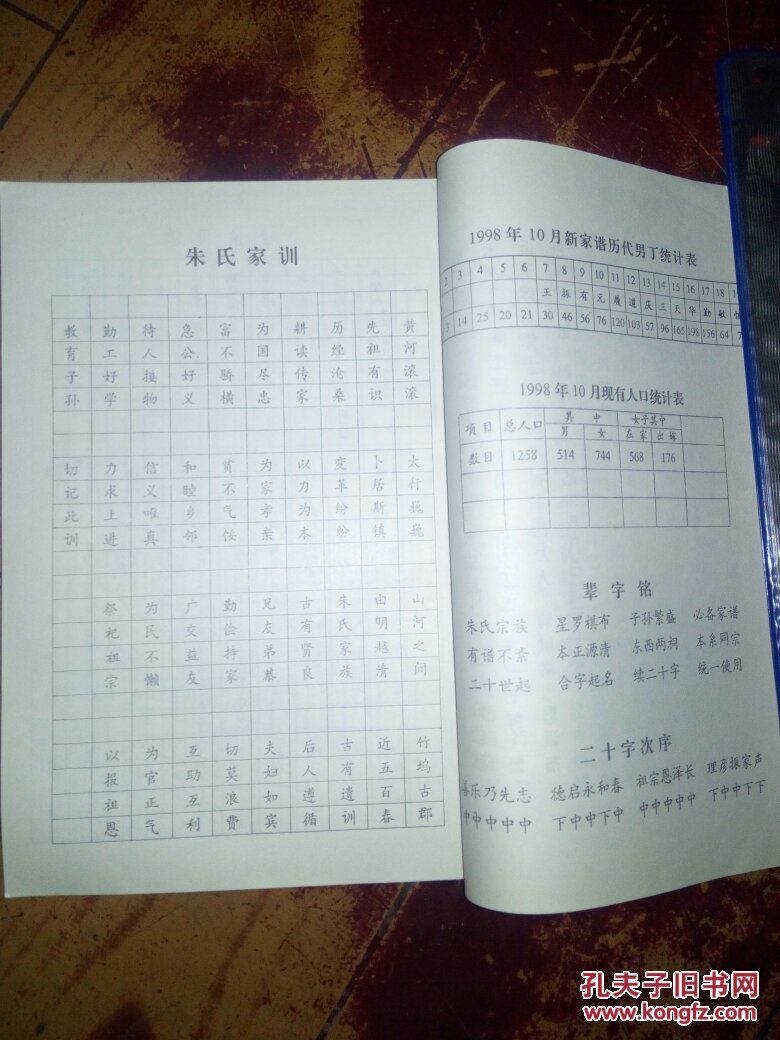 朱氏家训
黄河滚滚 太行巍巍 山河之间 竹坞古郡
先祖有识 卜居斯镇 由明越清 近五百春
历经沧桑 变革纷纷 朱氏家族 古有遗训
耕读传家 以力为本 古有贤良 后人遵循
为国尽忠 为家孝亲 兄友弟恭 夫妇如宾
富不骄横 贫不气馁 勤俭持家 切莫浪费
急公好义 和睦乡邻 广交益友 互助互利
待人接物 信义唯真 为民不懒 为官正气
勤工好学 力求上进 祭祀祖宗 以报祖恩
教育子孙 切记此训
1998年10月新家谱历代男丁统计表
2 3 4 5 6 7 8 9 10 11 12 13 14 15 16 17 18
王 振 有 元 履 道 庆 三 天 华 勤 敏
3 14 25 20 21 30 46 56 76 120 103 57 96 165 198 156 64
1998年10月现有人口统计表
项目 总人口 其中 女子其中
男 女 在家 出嫁
数目 1258 514 744 568 176
辈字铭
朱氏宗族 星罗棋布 子孙繁盛 必备家谱
有谱不紊 本正源清 东西两祠 本系同宗
二十世起 合字起名 续二十字 统一使用
二十字次序
善乐乃先志 德启永和春 祖宗恩泽长 理彦振家声
中中中中中 下中中下中 中中中中中 下中中下下
孔夫子旧书网
www.kongfz.com